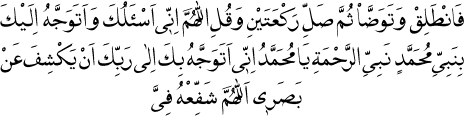 فَانْطَلِقْ وَتَوَضَّاْ ثُمَّ صَلِّ رَكْعَتَيْنِ وَقُلِ اللّٰهُمَّ اِنّٖى اَسْئَلُكَ وَاَتَوَجَّهُ اِلَيْكَ
بِنَبِيِّ مُحَمَّدٍ نَبِيِّ الرَّحْمَةِ يَا مُحَمَّدُ اِنّٖى اَتَوَجَّهُ بِكَ اِلٰى رَبِّكَ اَنْ يَكْشِفَ عَنْ
بَصَرٖى اَللّٰهُمَّ شَفِّعْهُ فِىَّ